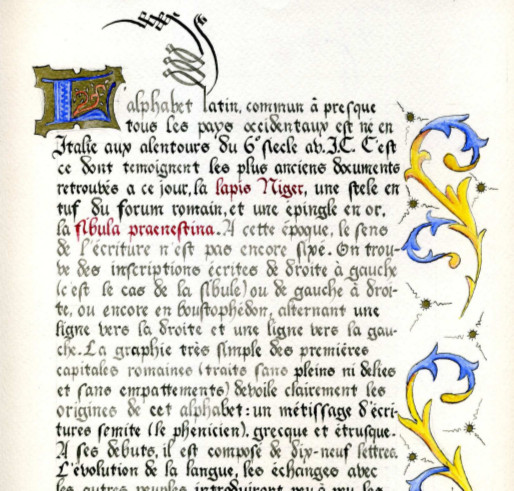 L alphabet latin, commun à presque
tous les pays occidentaux est né en
Italie aux alentours du 6e siecle av. J.C. C'est
ce dont temoignent les plus anciens documents
retrouvés a ce jour, la lapis Niger, une stele en
tuf du forum romain, et une epingle en or,
la fibula praenestina. A cette époque, le sens
de l'écriture n'est pas encore fixé. On trou-
ve des inscriptions écrites de droite à gauche
(c'est le cas de la fibule) ou de gauche à droi-
te, ou encore en boustophédon, alternant une
ligne vers la droite et une ligne vers la gau-
che. La graphie très simple des premières
capitales romaines (traits sans pleins ni delies
et sans empattements) devoile clairement les
origines de cet alphabet : un métissage d'écri-
tures semite (le phenicien), grecque et étrusque.
A ses débuts, il est composé de dix-neuf lettres.
L'évolution de la langue, les échanges avec
les autres peuples introduiront peu à peu les